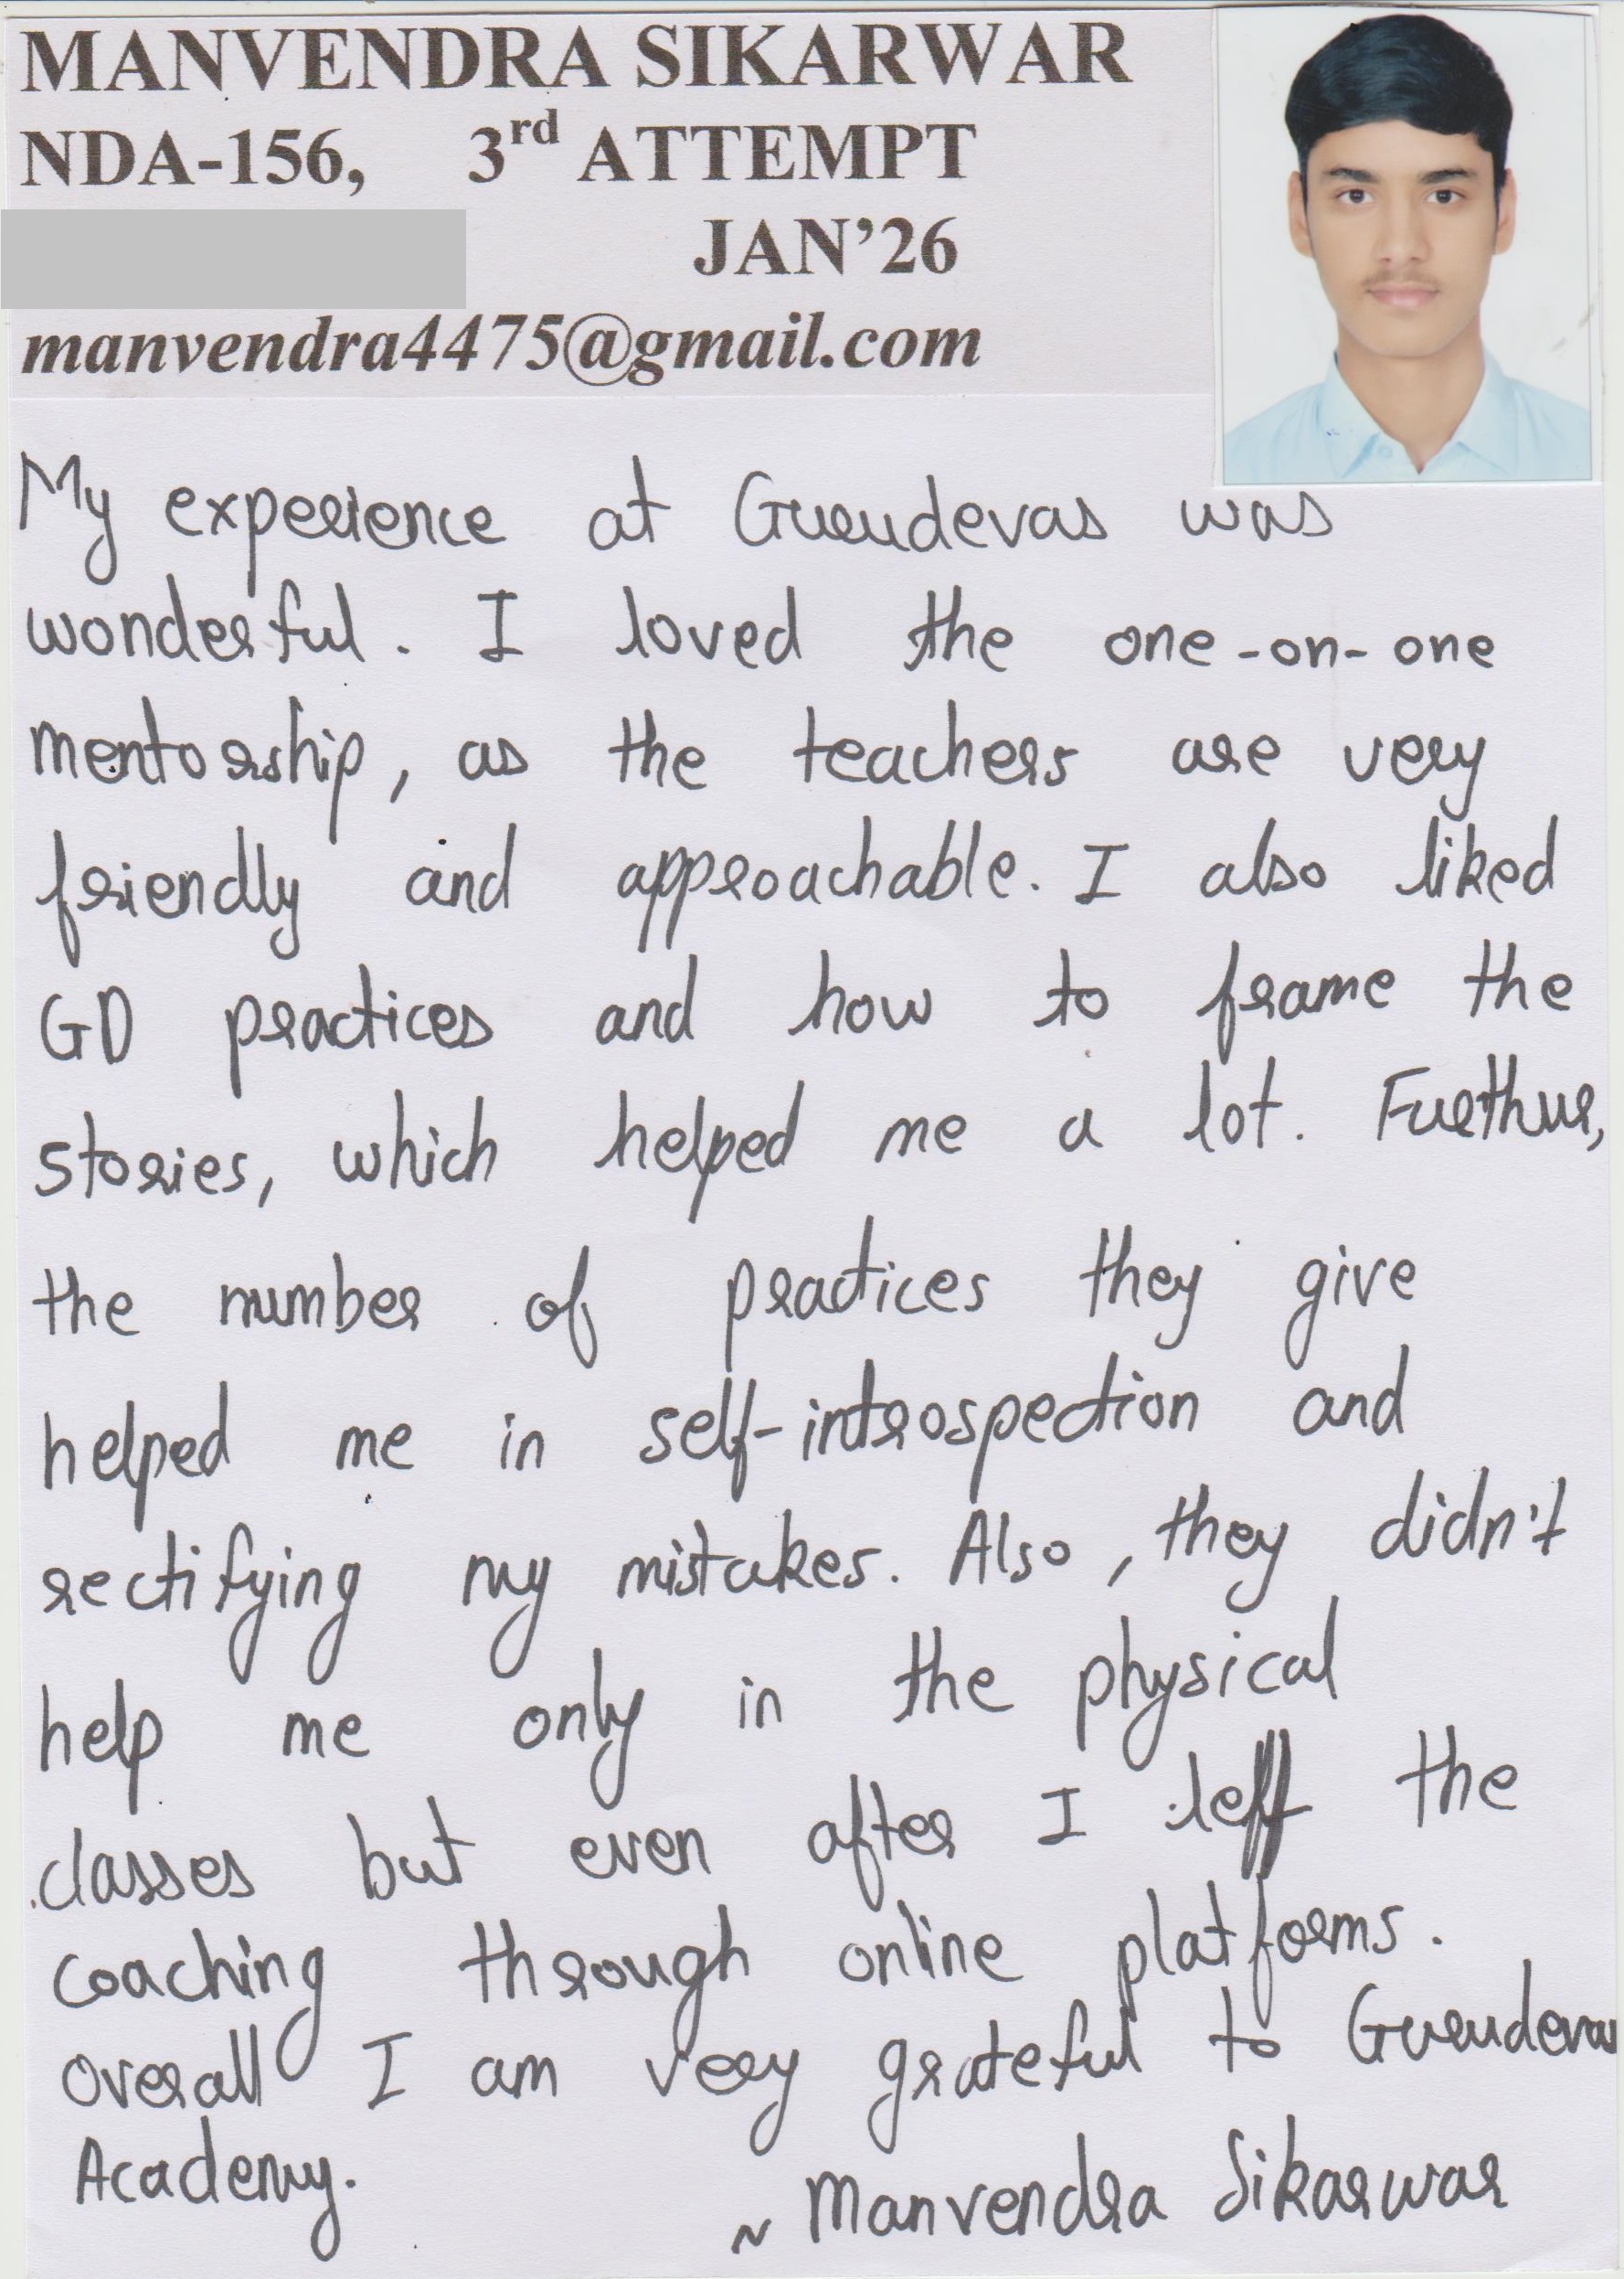 MANVENDRA SIKARWAR
NDA-156, 3rd ATTEMPT
JAN'26
manvendra4475@gmail.com
My experience at Gurudevas was
wonderful. I loved the one-on-one
mentorship, as the teachers are very
friendly and approachable. I also liked
GD practices and how to frame the
stories, which helped me a lot. Furthur,
the number of practices they give
helped me in self-introspection and
rectifying my mistakes. Also, they didn't
help me only in the physical
classes but even after I left the
coaching through online platforms.
Overall I am very grateful to Gurudevas
Academy.
~ Manvendra Sikarwar